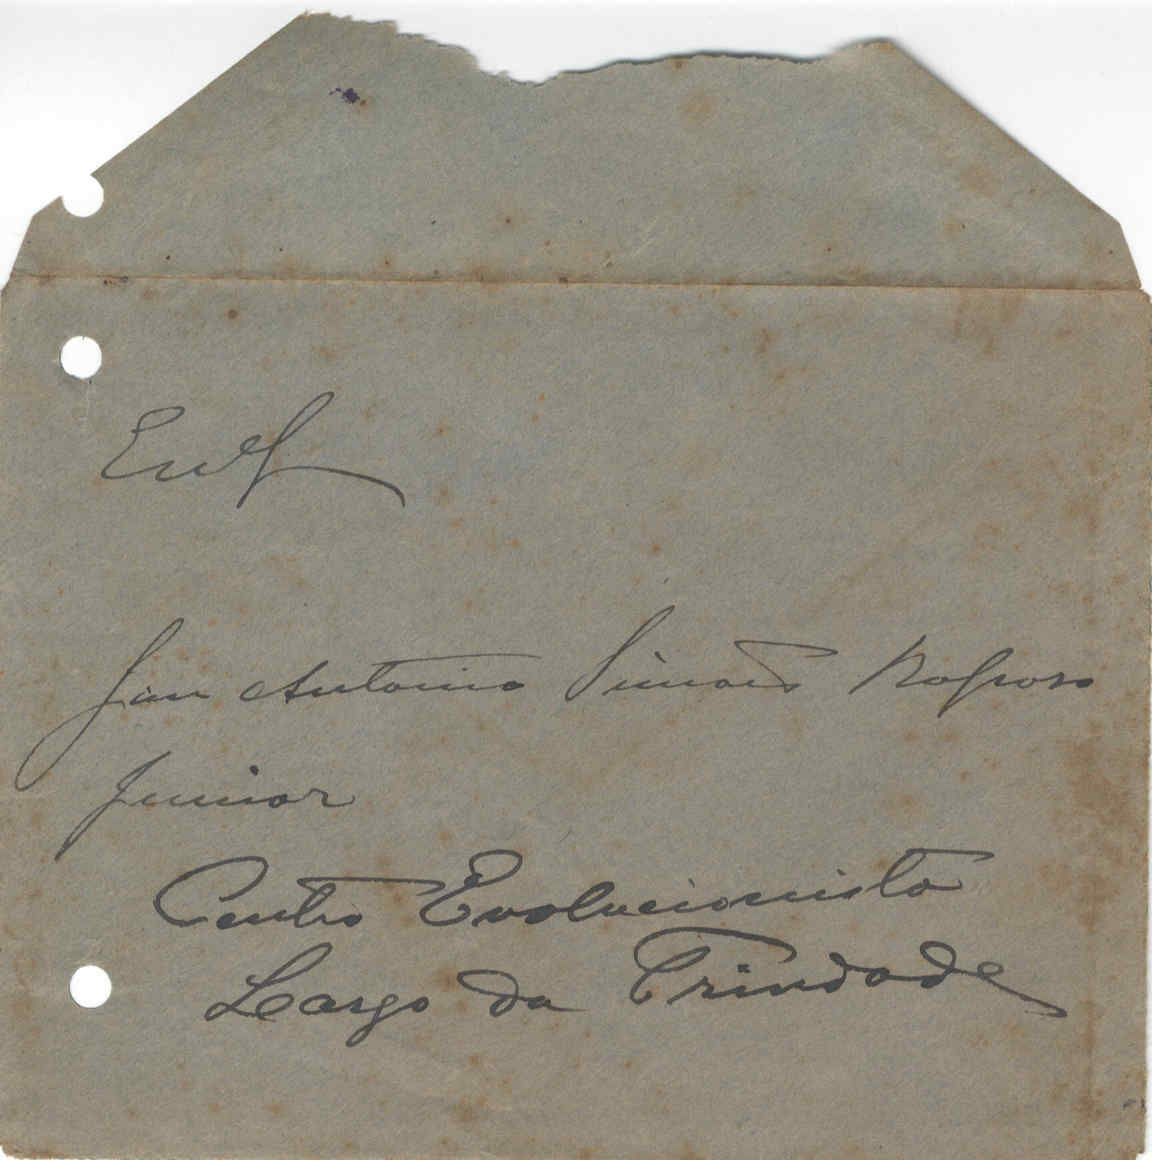 Antonio Simões Raposo
Junior
Centro Evolucionista
Largo da Trindade